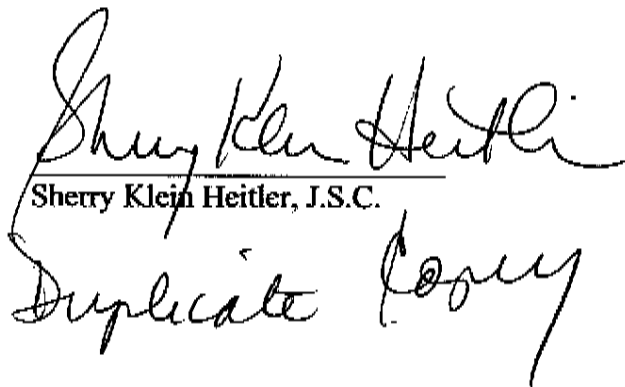 Sherry Klein Heitler
Sherry Klein Heitler, J.S.C.
Duplicate Copy